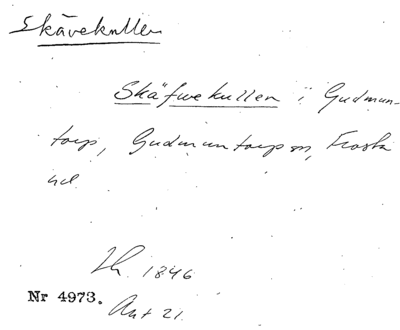 Skävekullen
Skäfwekullen i Gudmun-
torp, Gudmuntorps sn, Frosta
hd
Lh. 1846
Nr 4973.
Ant 21.